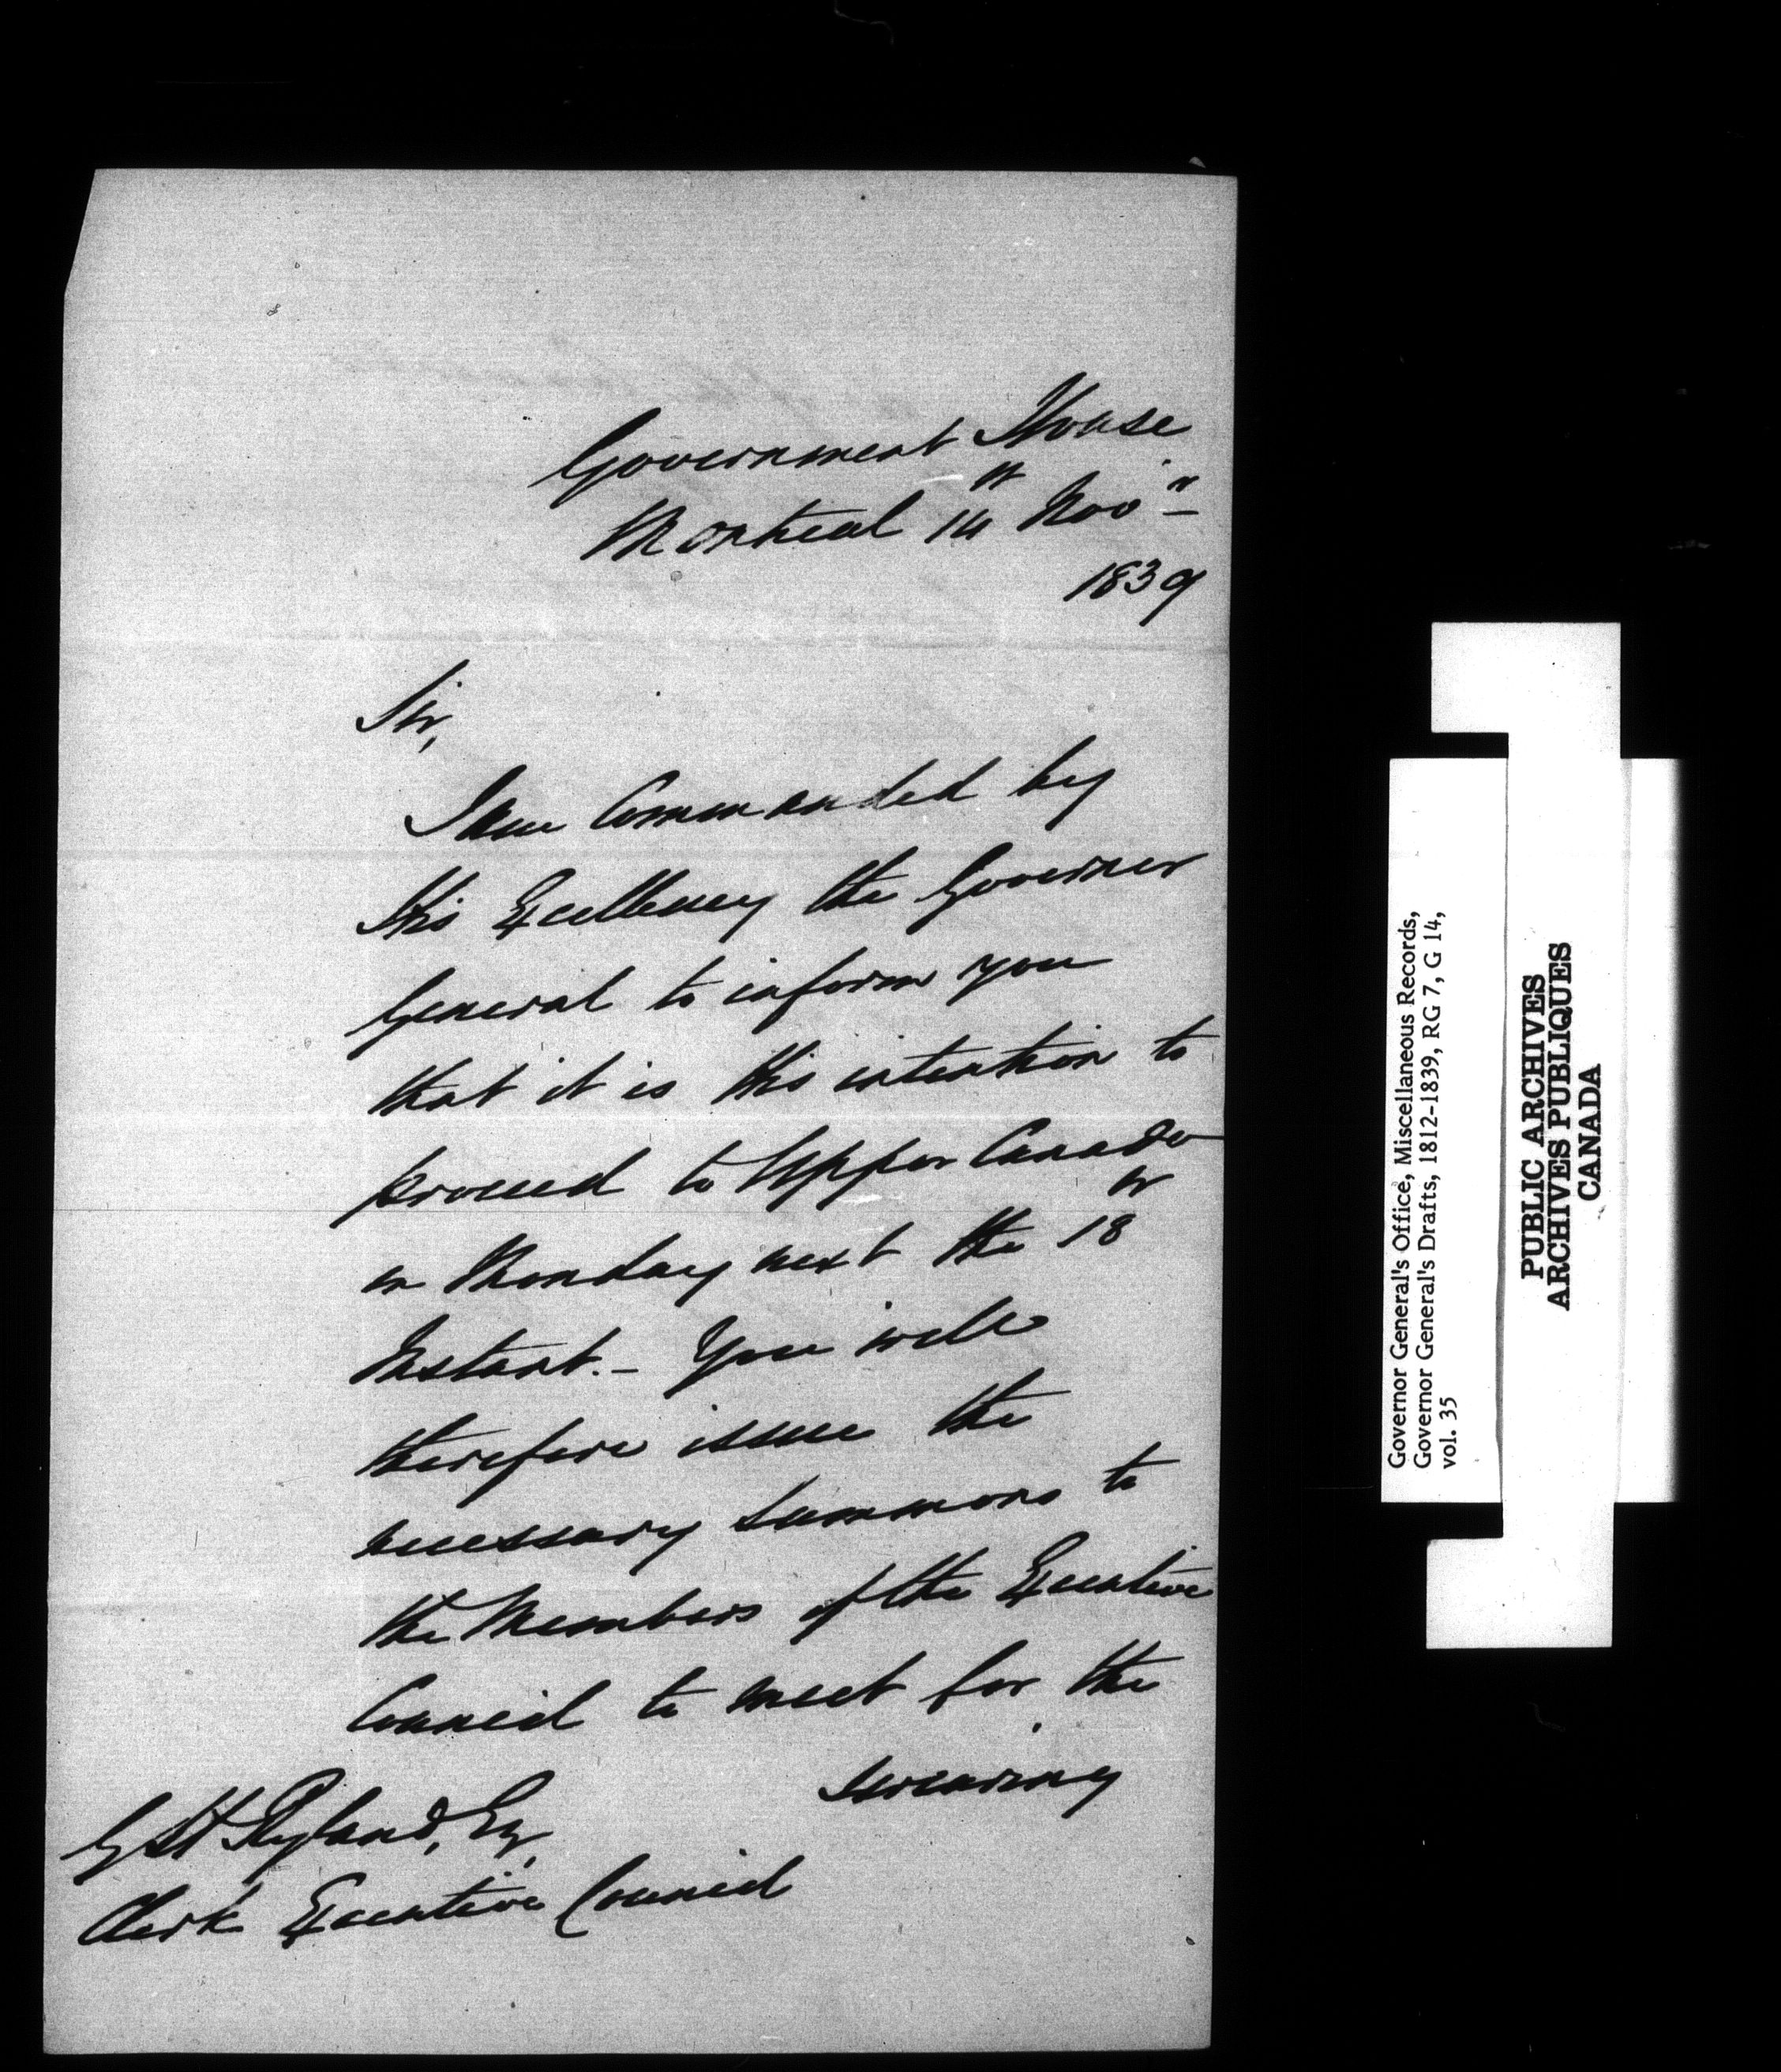 Government House
Montreal 14th Novr
1839
Sir,
I am Commanded by
His Excellency the Governor
General to inform you
that it is His intention to
proceed to Upper Canada
on Monday next the 18th
Instant. - You will
therefore issue the
necessary Summons to
the Members of the Executive
Council to meet for the
swearing
G H Ryland, Esq.
Clerk Executive Council
Governor General's Office, Miscellaneous Records,
Governor General's Drafts, 1812-1839, RG 7, G 14,
vol. 35
PUBLIC ARCHIVES
ARCHIVES PUBLIQUES
CANADA